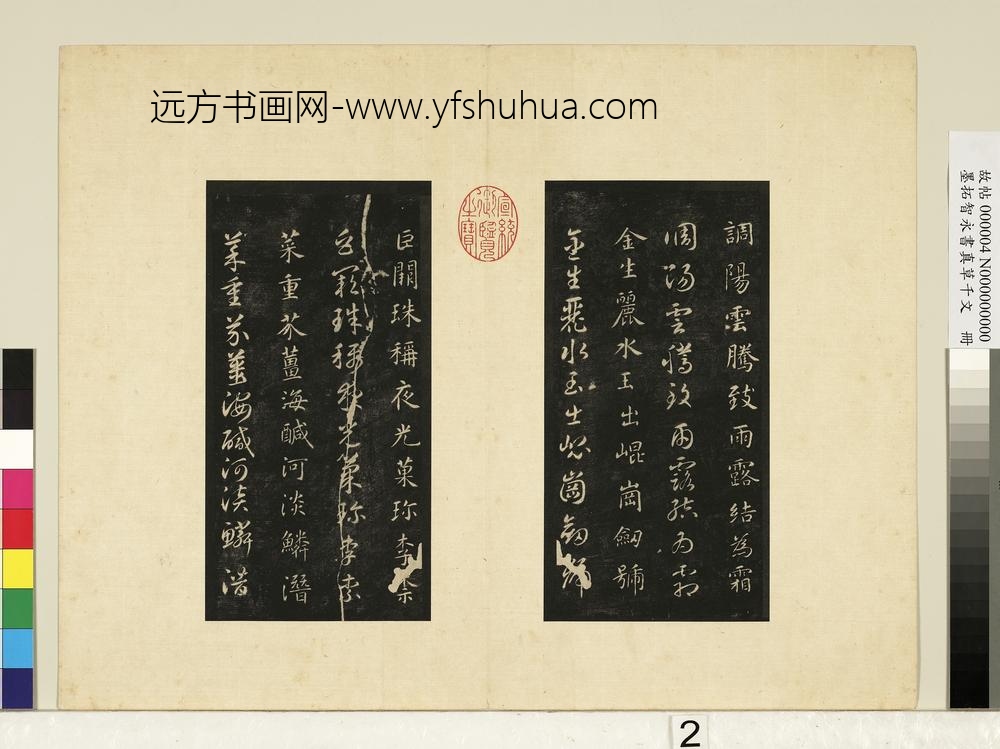 远方书画网-www.yfshuhua.com
調陽雲騰致雨露結為霜
調陽雲騰致雨露結為霜
金生麗水玉出崐崗劔號
金生麗水玉出崐崗劔號
巨闕珠稱夜光菓珎李柰
巨闕珠稱夜光菓珎李柰
菜重芥薑海醎河淡鱗潛
菜重芥薑海醎河淡鱗潛
宣統御覽之寶
故帖 000004 N000000000
墨拓智永書真草千文 冊
2